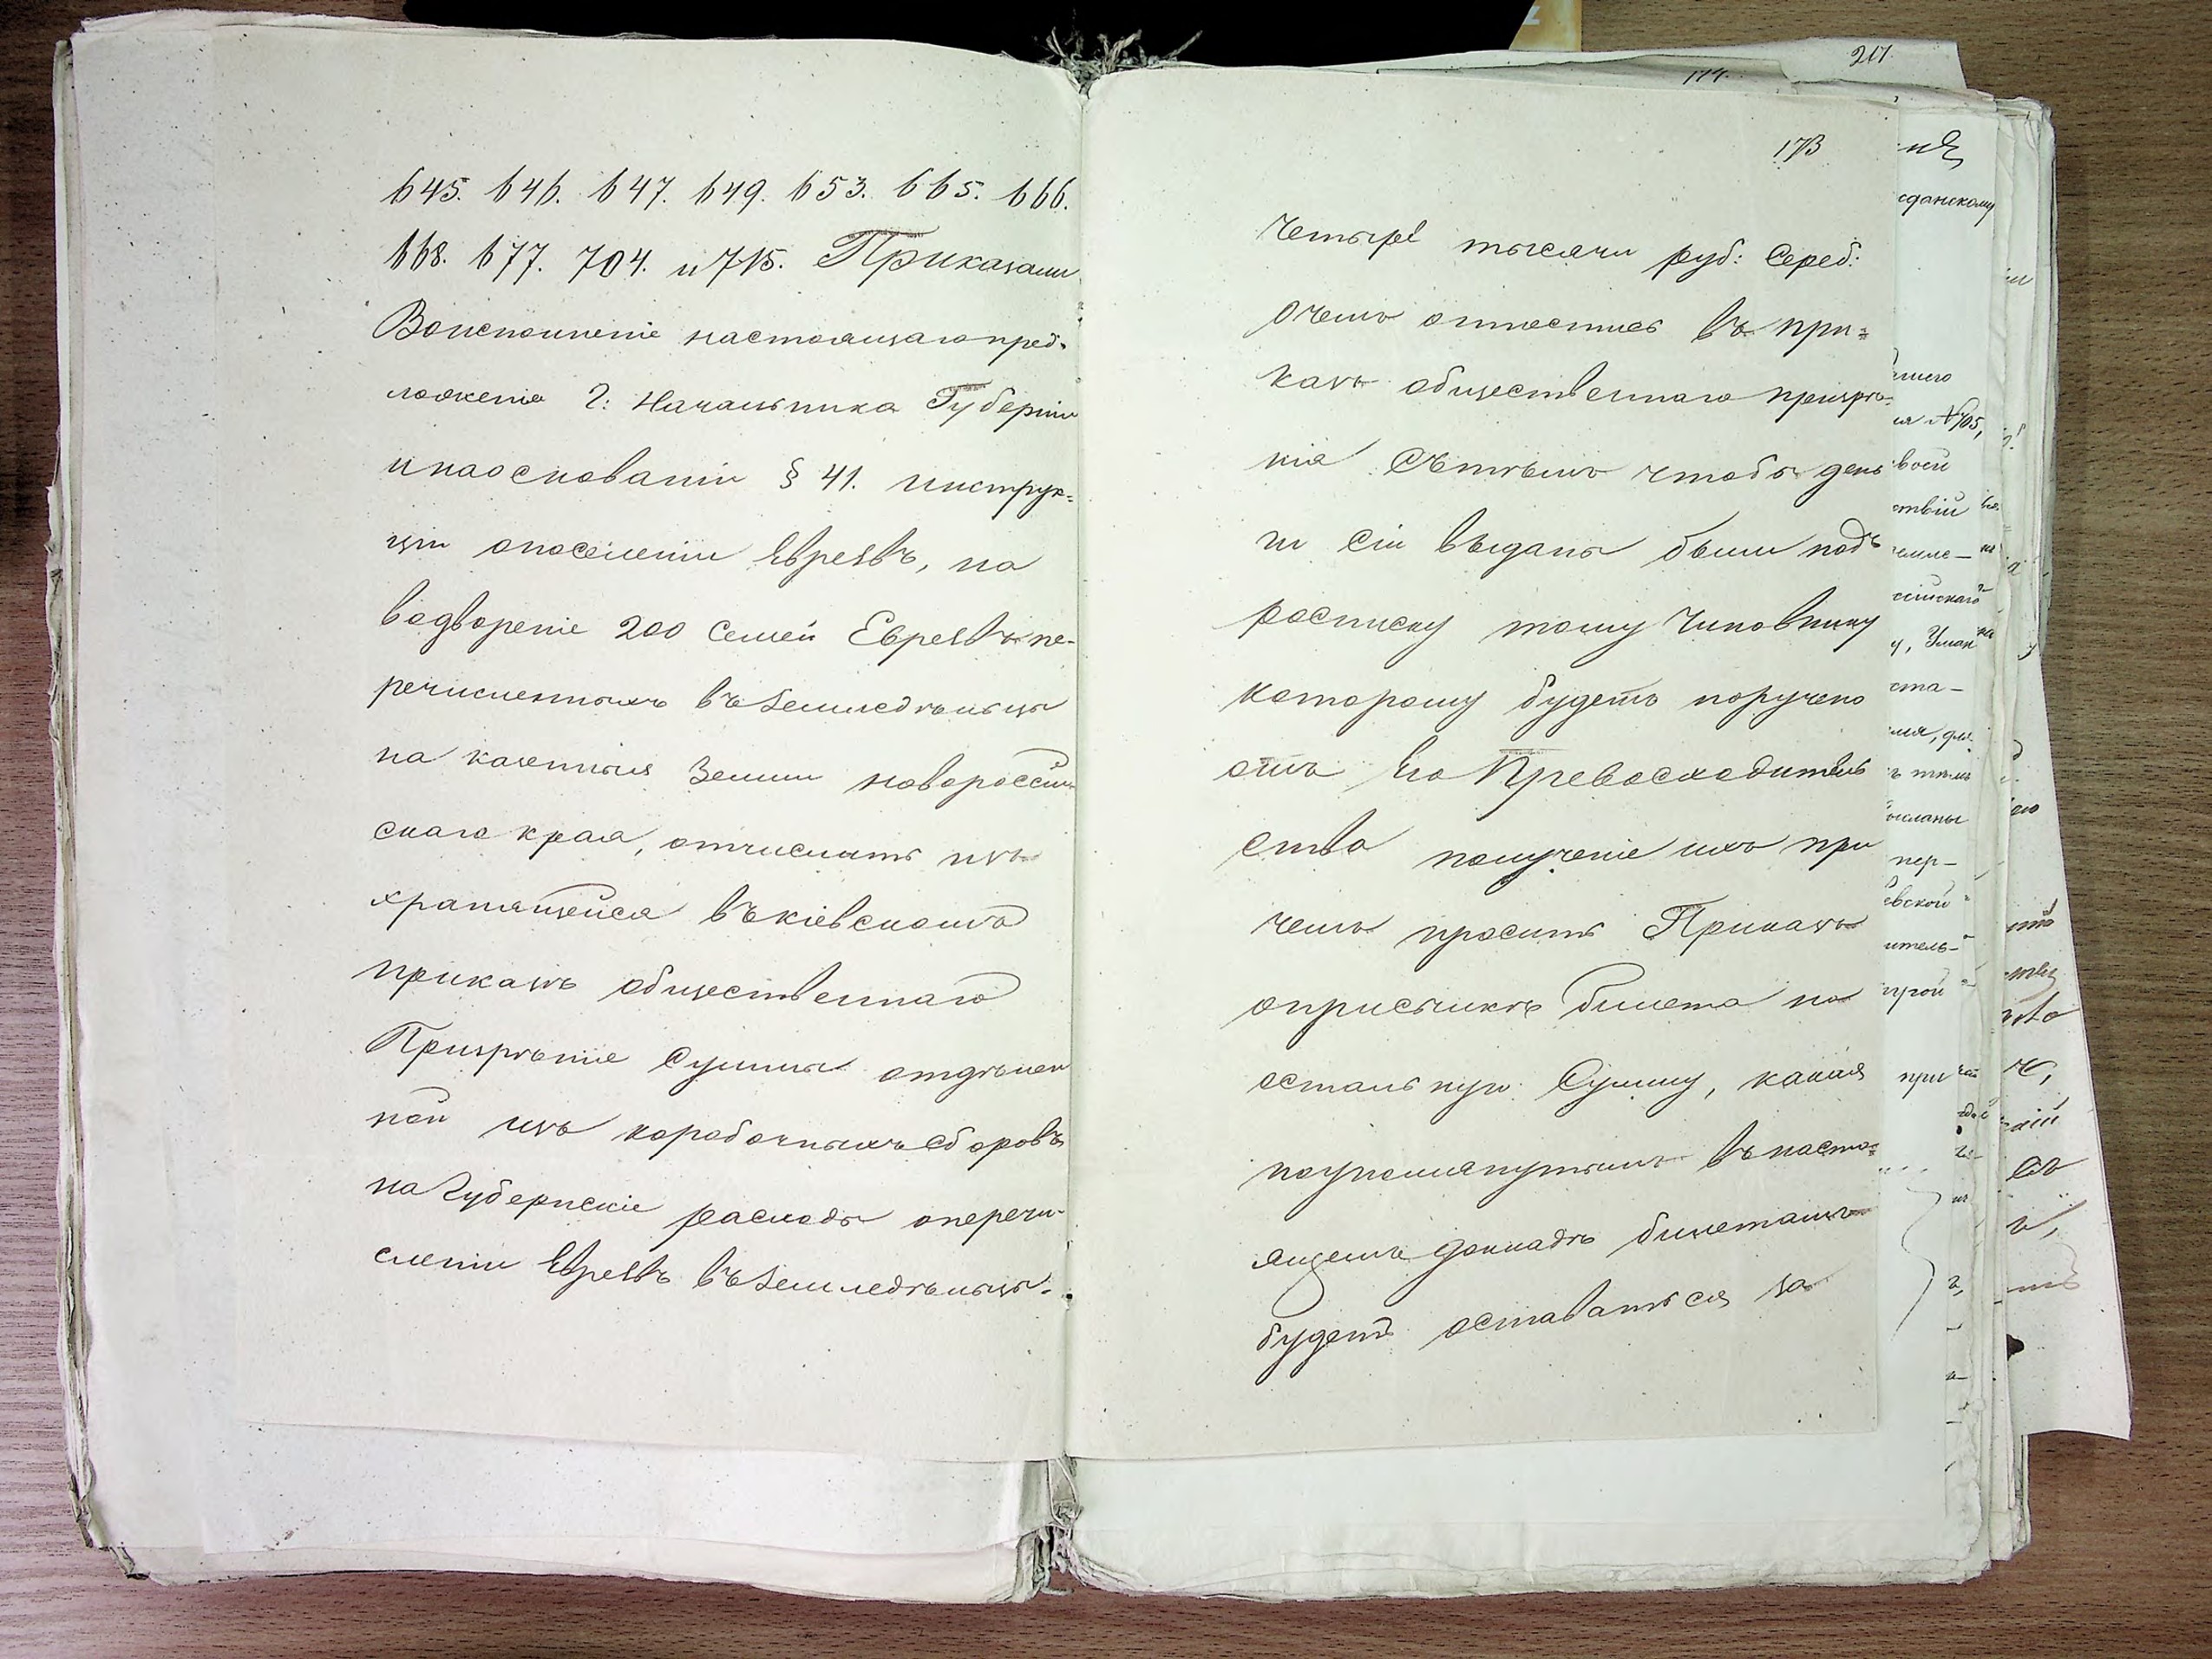 645. 646. 647. 649. 653. 665. 666.
668. 677. 704. и 715. Приказали
Воисполнение настоящаго пред-
ложения Г: Начальника Губернии
и наосновании § 41. инструк-
ции опоселении Евреевъ, на
водворение 200 семей Евреевъ пе-
речисленныхъ въ Земледѣльцы
на казенныя Земли новороссий
скаго края, отчислить изъ
хранящейся въ киевскомъ
приказѣ общественнаго
Призрѣние Суммы отдѣлен
ной изъ коробочныхъ сборовъ
на Губернские расходы оперечи-
слении Евреевъ въ Земледѣльцы.
217.
174.
173
четыре тысячи руб: Сереб:
очемъ отнестись въ при-
казъ общественнаго призрѣ-
ния Сътѣмъ чтобы день
ги сии выданы были подъ
росписку тому Чиновнику
которому будетъ поручено
отъ Его Превосходитель
ства получение ихъ при
чемъ просить Приказъ
оприсылкѣ билета на
остальную Сумму, какая
поупомянутымъ въ насто-
ящемъ докладѣ билетамъ
будетъ оставаться за